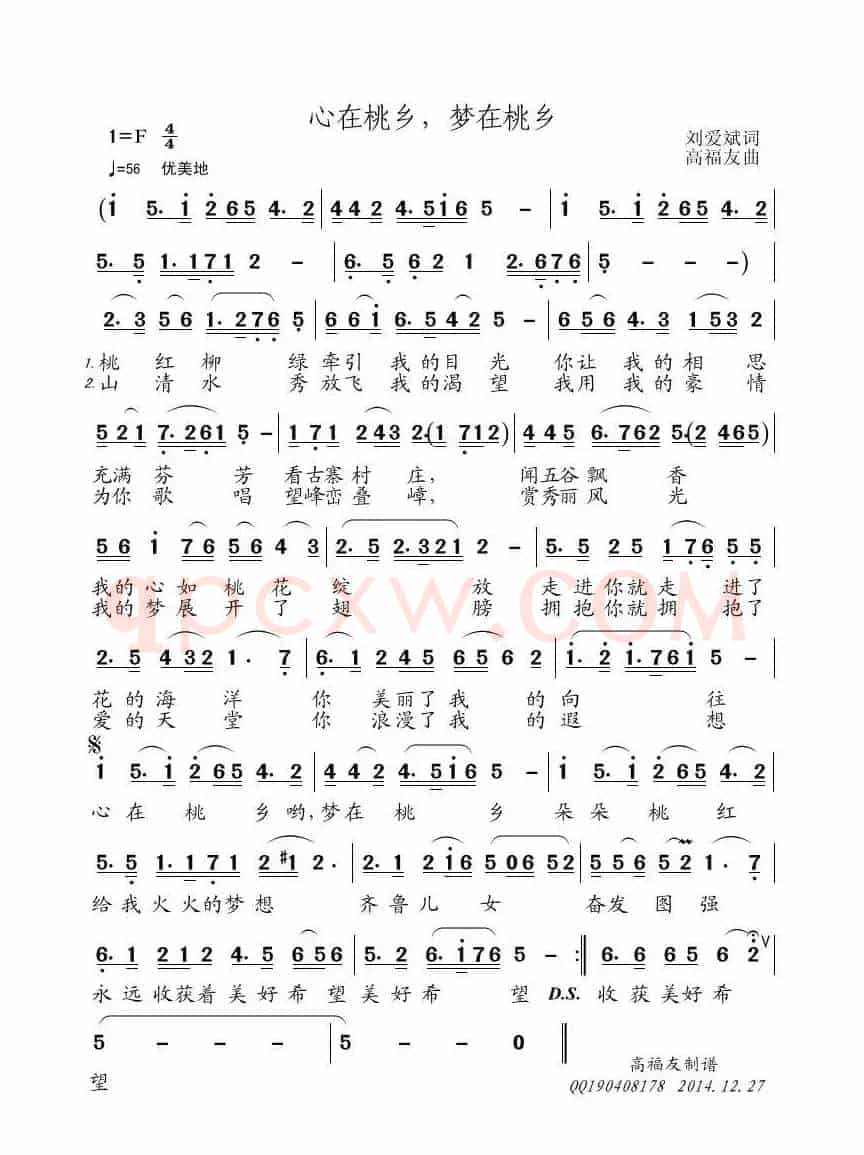 心在桃乡，梦在桃乡
1=F 4/4
刘爱斌词
高福友曲
♩=56 优美地
(i 5. i 2 6 5 4. 2 | 4 4 2 4. 5 i 6 5 – | i 5. i 2 6 5 4. 2
5. 5 1. 1 7 1 2 – | 6. 5 6 2 1 2. 6 7 6 | 5 – – –)
2. 3 5 6 1. 2 7 6 5 | 6 6 i 6. 5 4 2 5 – | 6 5 6 4. 3 1 5 3 2
1. 桃 红 柳 绿 牵引 我 的 目 光 你让 我 的 相 思
2. 山 清 水 秀 放飞 我 的 渴 望 我用 我 的 豪 情
5 2 1 7. 2 6 1 5 – | 1 7 1 2 4 3 2.(1 7 1 2) | 4 4 5 6. 7 6 2 5.(2 4 6 5)
充满 芬 芳 看古寨 村 庄， 闻五谷 飘 香
为你 歌 唱 望峰峦 叠 嶂， 赏秀丽 风 光
5 6 i 7 6 5 6 4 3 | 2. 5 2. 3 2 1 2 – | 5. 5 2 5 1 7 6 5 5
我的 心 如 桃 花 绽 放 走 进 你 就 走 进了
我的 梦 展 开 了 翅 膀 拥 抱 你 就 拥 抱了
2. 5 4 3 2 1 . 7 | 6. 1 2 4 5 6 5 6 2 | 1. 2 1. 7 6 1 5 –
花 的 海 洋 你 美丽了 我 的 向 往
爱 的 天 堂 你 浪漫了 我 的 遐 想
i 5. i 2 6 5 4. 2 | 4 4 2 4. 5 i 6 5 – | i 5. i 2 6 5 4. 2
心 在 桃 乡 哟，梦在 桃 乡 朵 朵 桃 红
5. 5 1. 1 7 1 2 #1 2 . | 2. 1 2 i 6 5 0 6 5 2 | 5 5 6 5 2 1 . 7
给 我 火 火的 梦 想 齐 鲁 儿 女 奋发 图 强
6. 1 2 1 2 4. 5 6 5 6 | 5. 2 6. i 7 6 5 – :‖ 6. 6 6 5 6 2 V
永 远 收获着 美 好 希 望 美 好 希 望 D.S. 收 获 美好 希
5 – – – | 5 – – 0 ‖
望
高福友制谱
QQ190408178 2014.12.27
qpcxw.com